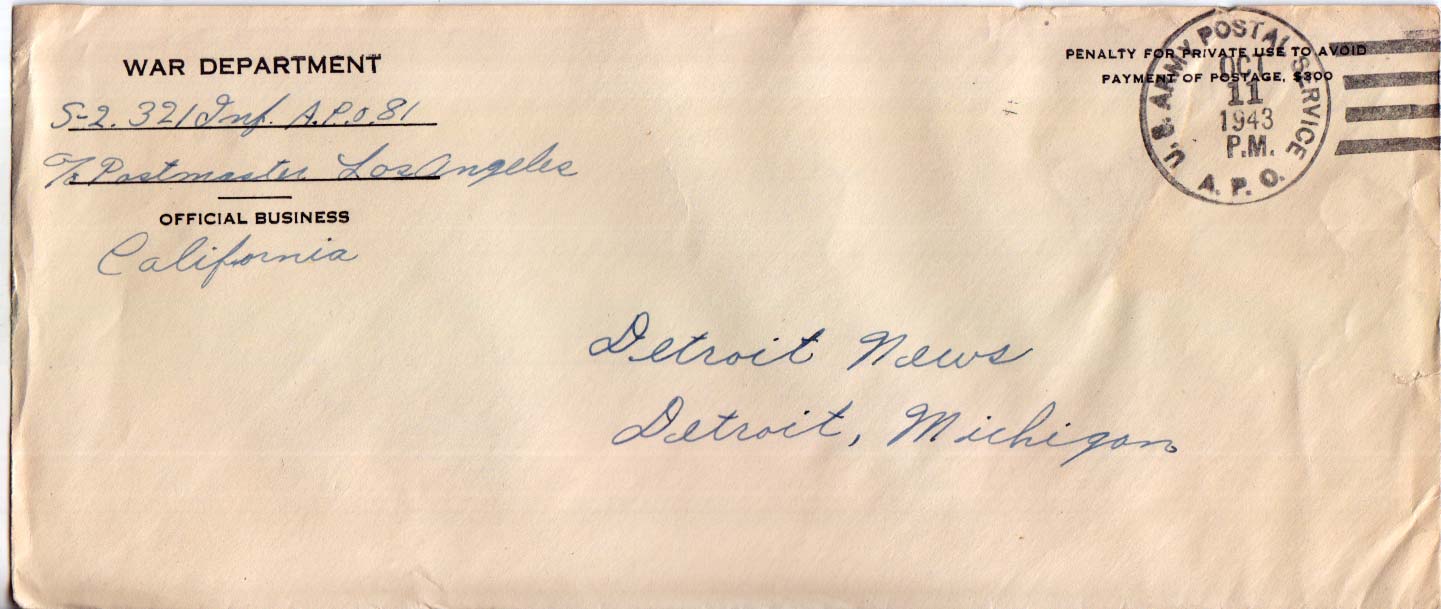 WAR DEPARTMENT
S-2. 321 Inf. A.P.O. 81
c/o Postmaster Los Angeles
OFFICIAL BUSINESS
California
PENALTY FOR PRIVATE USE TO AVOID
PAYMENT OF POSTAGE, $300
U.S. ARMY POSTAL SERVICE
OCT
11
1943
P.M.
A.P.O.
Detroit News
Detroit, Michigan